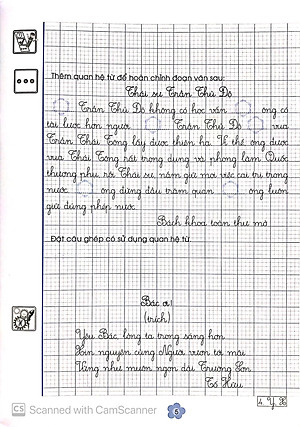 Thêm quan hệ từ để hoàn chỉnh đoạn văn sau:
Thái sư Trần Thủ Độ
Trần Thủ Độ không có học vấn ông có
tài lược hơn người Trần Thủ Độ vua
Trần Thái Tông lấy được thiên hạ. Vì thế ông được
vua Thái Tông rất trọng dụng và phong làm Quốc
thượng phụ rồi Thái sư nắm giữ mọi việc cai trị trong
nước ông đứng đầu trăm quan ông luôn
giữ đúng phép nước.
Bách khoa toàn thư mở
Đặt câu ghép có sử dụng quan hệ từ.
Bác ơi!
(trích)
Yêu Bác lòng ta trong sáng hơn
Xin nguyện cùng Người vươn tới mãi
Vững như muôn ngọn dải Trường Sơn
Tố Hữu
CS Scanned with CamScanner
5